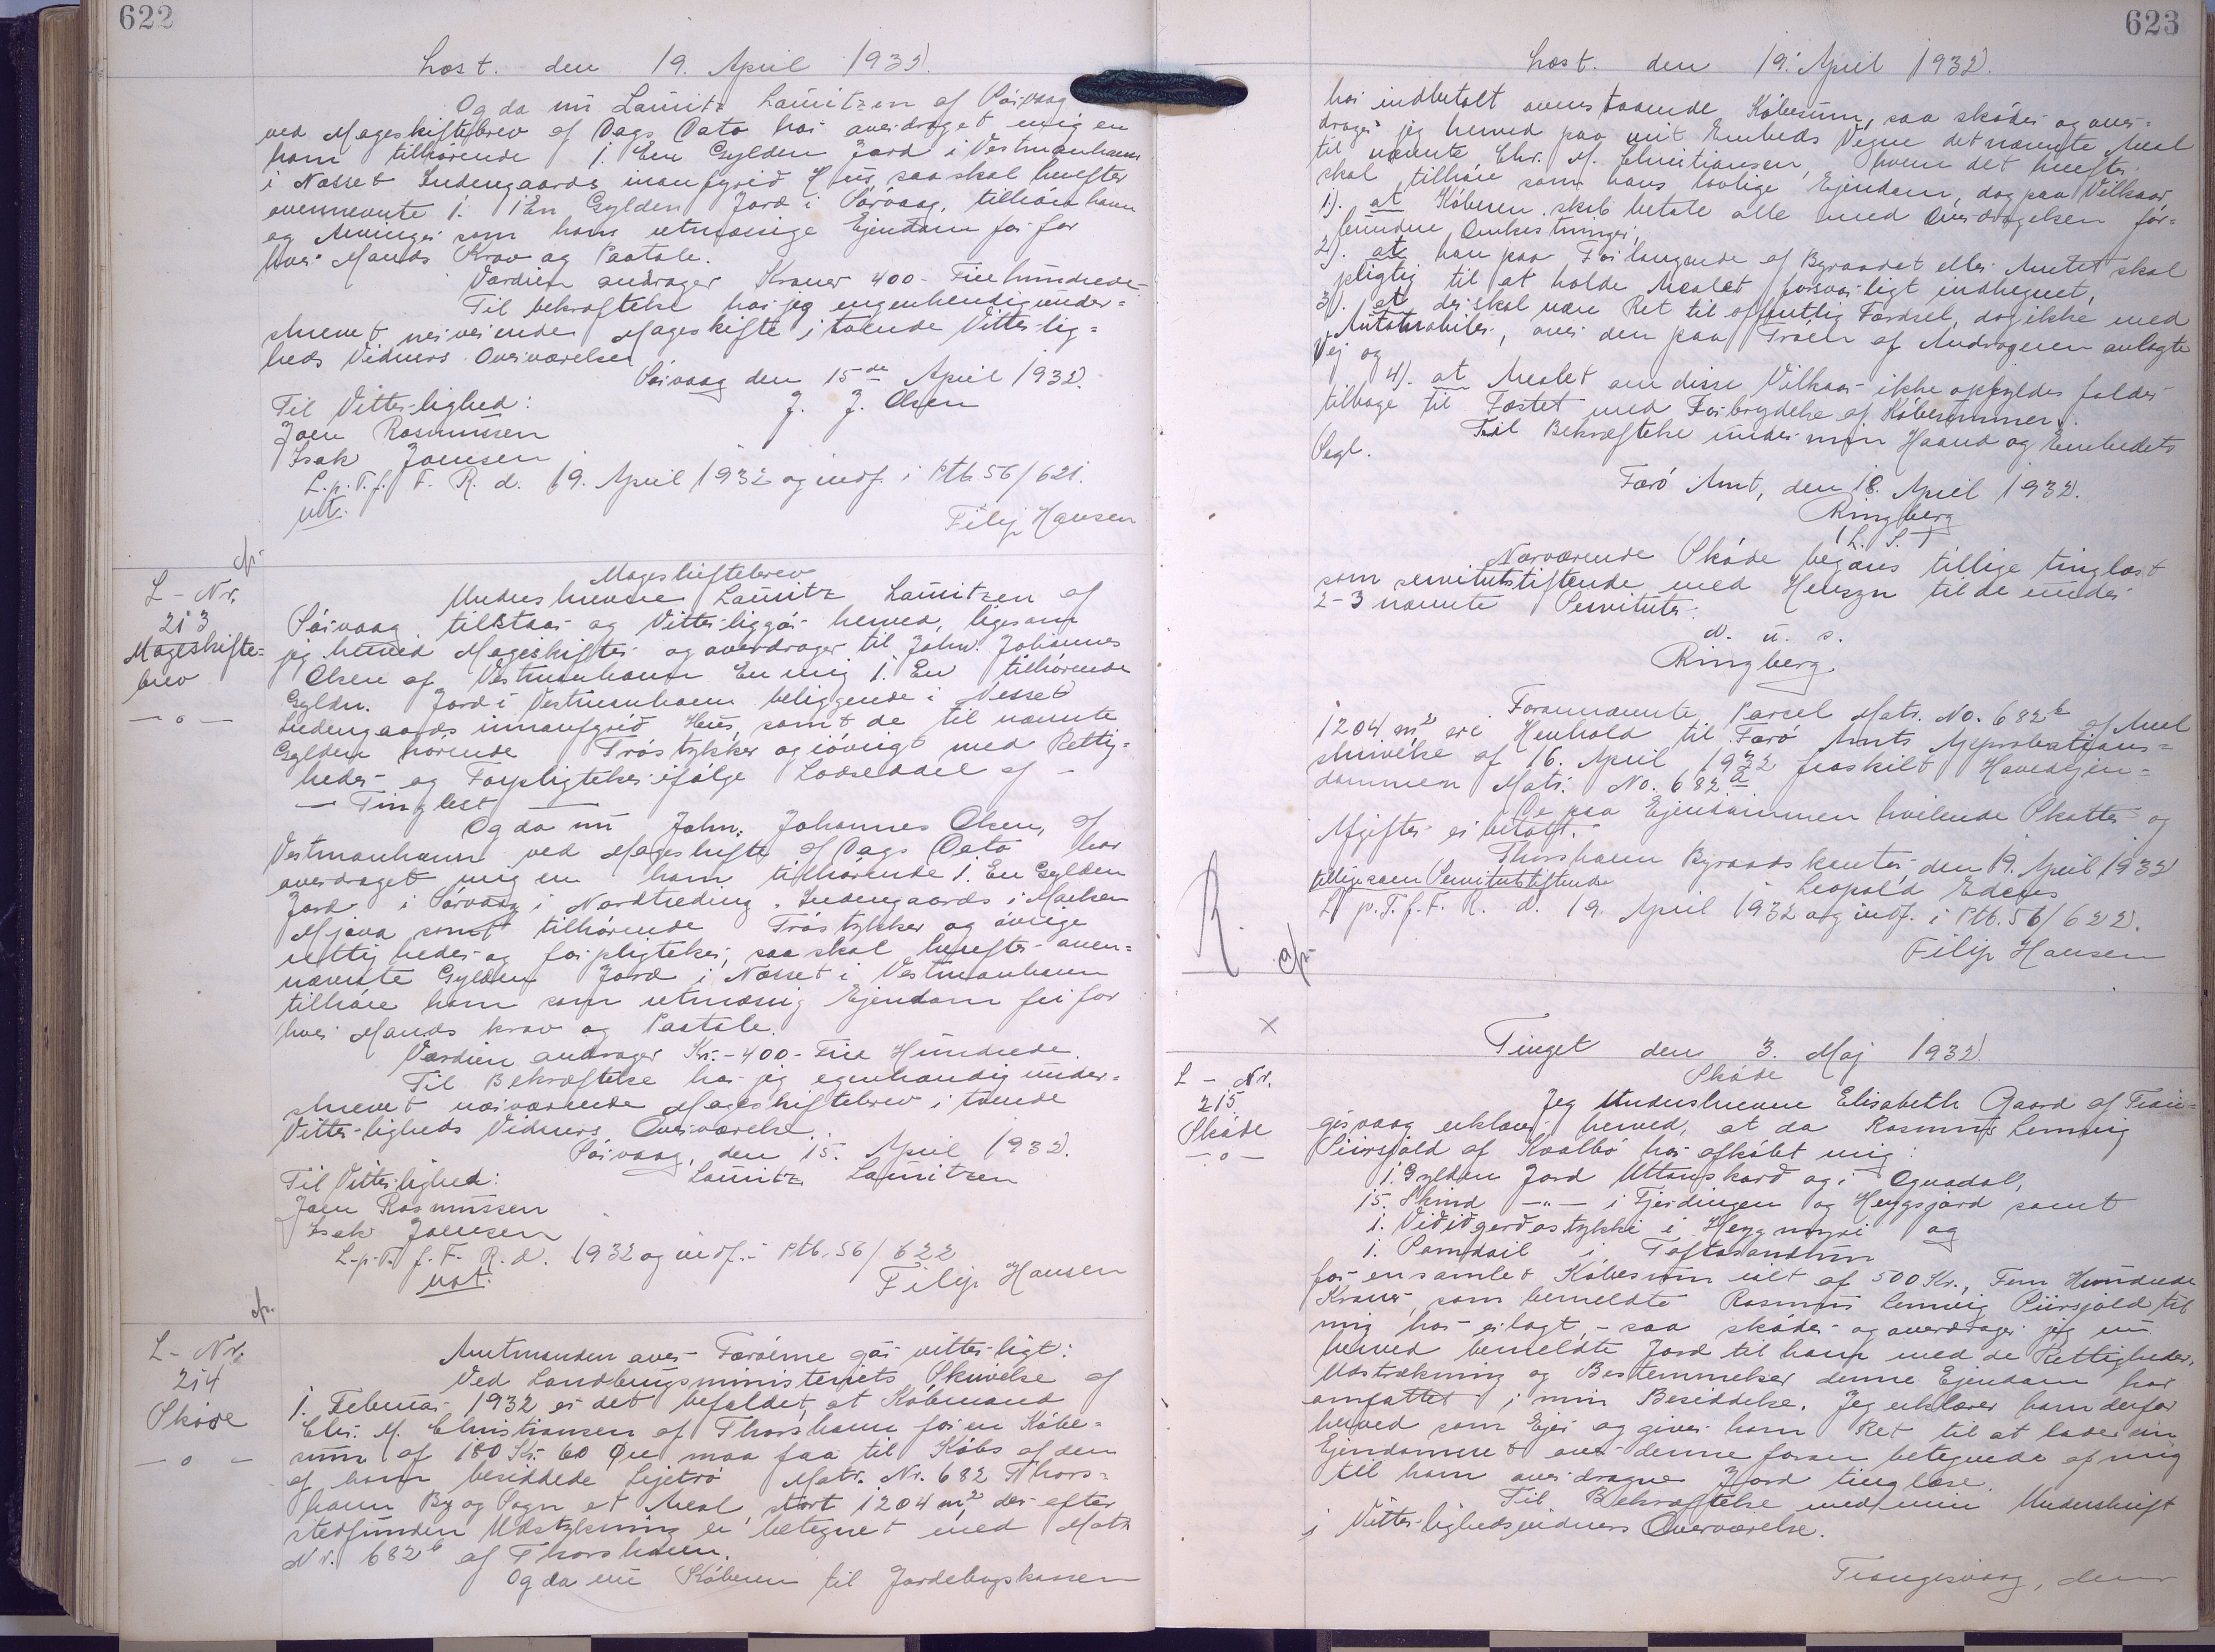 622
Læst. den 19. April 1932.
Og da nu Lauritz Lauritzen af Sörvaag
ved Mageskiftebrev af Dags Dato har overdraget mig en
ham tilhörende 1. Een Gylden Jord i Vestmanhavn
i Næsset Sudengaards Hus saa skal herefter
ovennevnte 1. 1 En Gylden Jord i Sörvaag, tilhöre ham
og Arvinger som hans retmæssige Ejendom fri for
hver Mands Krav og Paatale.
Værdien andrager Kroner 400 - Firehundrede -
Til bekræftelse har jeg egenhendig under=
skrevet nerverende Mageskifte i tvende Vitterlig=
heds Vidners Overværelse
Sörvaag den 15de April 1932.
Til Vitterlighed: J. J. Olsen
Joen Rasmussen
Isak Joensen
L.p.T.f. F. R. d. 19. April 1932 og indf. i Ptb 56/621.
Filip Hansen
L - Nr.
213
Mageskifte=
brev
— o —
Mageskiftebrev
Underskrevne Lauritz Lauritzen af
Sörvaag tilstaar og Vitterliggör herved, ligesom
jeg herved Mageskifter og overdrager til Johan Johannes
Olsen af Vestmanhavn En mig 1. En tilhörende
Gyldn. Jord i Vestmanhavn beliggende i Nesset
Sudengaards Hus, samt de til nævnte
Gylden hörende Tröstykker og iövrigt med Rettig=
heder og Forpligtelser ifölge Lodseddel af —
— Tinglest —
Og da nu Johan. Johannes Olsen, af
Vestmanhavn ved Mageskifte af Dags Dato har
overdraget mig en ham tilhörende 1. En Gylden
Jord i Sörvaag i Nordtreding. Sudengaards i
Mjava samt tilhörende Tröstykker og övrige
rettigheder og forpligtelser, saa skal herefter oven=
nævnte Gylden Jord i Næsset i Vestmanhavn
tilhöre ham som retmæssig Ejendom fri for
hver Mands krav og Paatale.
Værdien andrager Kr. - 400 - Fire Hundrede.
Til Bekræftelse har jeg egenhændig under=
skrevet nærværende Mageskiftebrev i tvende
Vitterligheds Vidners Overværelse.
Sörvaag, den 15. April 1932.
Til Vitterlighed: Lauritz Lauritzen
Joen Rasmussen
Isak Joensen
L.p.T. f. F. R. d. 1932 og indf. i Ptb. 56/622
Filip Hansen
L - Nr.
214
Sköde
— o —
Amtmanden over Færöerne gör vitterligt:
Ved Landbrugsministeriets Skrivelse af
1. Februar 1932 er det befaldet, at Köbmand
Chr. M. Christiansen af Thorshavn for en Köbe=
sum af 180 Kr. 60 Øre maa faa til Köbs af den
af ham besiddede Lejetrö Matr. Nr. 682 Thors=
havn By og Sogn et Areal, stort 1204 m², der efter
stedfunden Udstykning er betegnet med Matr
Nr. 682 b af Thorshavn.
Og da nu Köberen til Jordebogskassen
623
Læst. den 19. April 1932.
har indbetalt ovenstaaende Köbesum, saa sköder og over=
drager jeg herved paa mit Embeds Vegne det nævnte Areal
til nævnte Chr. M. Christiansen, hvem det herefter
skal tilhöre som hans lovlige Ejendom, dog paa Vilkaar,
1). at Köberen skal betale alle med Overdragelsen for=
bundne Omkostninger,
2). at han paa Forlangende af Byraadet eller Amtet skal
pligtig til at holde Arealet forsvarligt indhegnet,
3). at der skal være Ret til offentlig Færdsel, dog ikke med
Automobiler, over den paa Tröen af Andrageren anlagte
Vej og
4). at Arealet om disse Vilkaar ikke opfyldes falder
tilbage til Fæstet med Forbrydelse af Köbesummen.
Til Bekræftelse under min Haand og Embedets
Segl.
Færö Amt, den 18. April 1932.
Ringberg
(L. S.)
Nærværende Sköde begæres tillige tinglæst
som servitutstiftende med Hensyn til de under
2-3 nævnte Servituter.
d. u. s.
Ringberg.
Forannævnte Parsel Matr. No. 682 b af Areal
1204 m² er i Henhold til Færö Amts Approbations=
skrivelse af 16. April 1932 fraskilt Hovedejen=
dommen Matr. No. 682 a
De paa Ejendommen hvilende Skatter og
Afgifter er betalt.
Thorshavn Byraads kontor, den 19. April 1932
tillige som Servitutstiftende Leopold
L p. T. f. F. R. d. 19. April 1932 og indf. i Ptb. 56/622.
Filip Hansen
R.
Tinget den 3. Maj 1932.
L - Nr.
215
Sköde
— o —
Sköde
Jeg Underskrevne Elisabeth Gaard af Tran=
gisvaag erklærer herved, at da Rasmus Lenvig
af Kvalbö har afköbt mig:
1. Gylden Jord Uttanskard og i
15. Skind —"— i Fjerdingen og samt
1. i og
1.
for en samlet Köbesum ialt af 500 Kr., Fem Hundrede
Kroner, som bemeldte Rasmus Lenvig til
mig har erlagt, - saa sköder og overdrager jeg nu
herved bemeldte Jord til ham med de Rettigheder,
Udstrækning og Bestemmelser denne Ejendom har
omfattet i min Besiddelse. Jeg erklærer ham derfor
herved som Ejer og giver ham Ret til at lade sin
Ejendomsret over denne foran betegnede af mig
til ham overdragne Jord tinglæse.
Til Bekræftelse med min Underskrift
i Vitterlighedsvidners Overværelse.
Trangisvaag, den